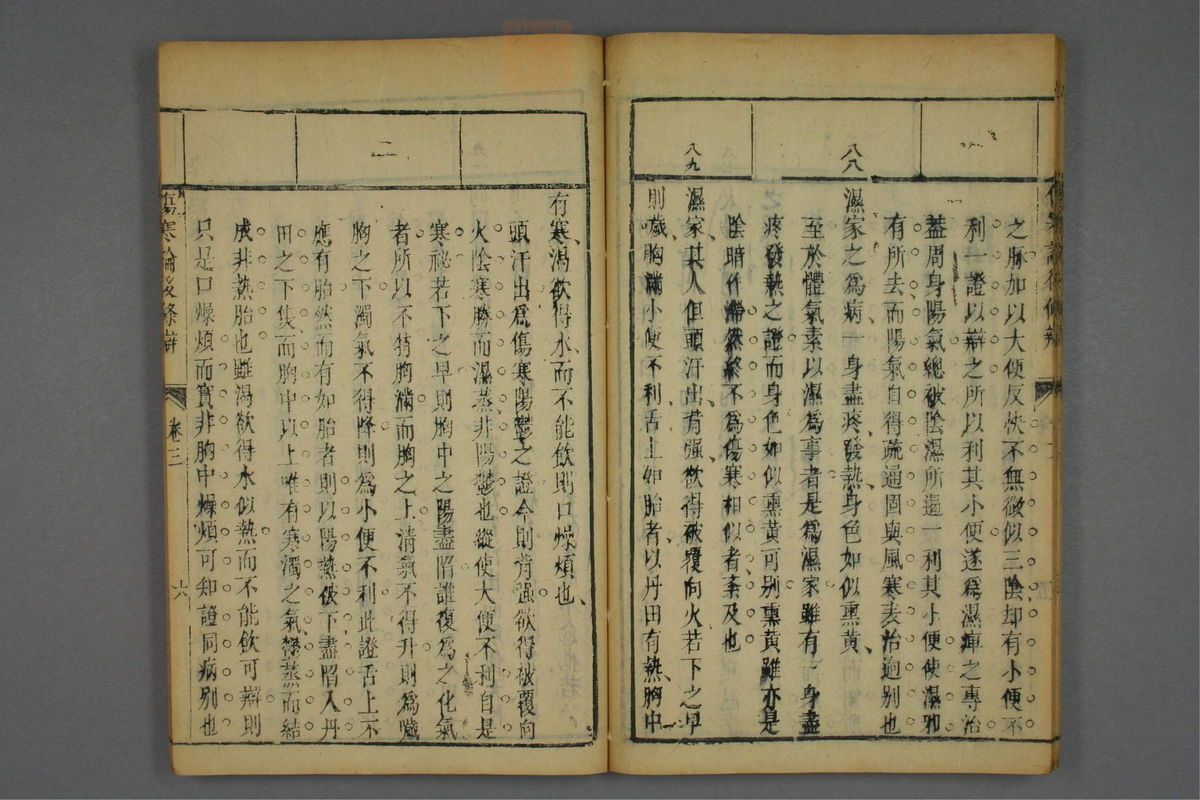 傷寒論後條辨
之脉加以大便反快不無微似三陰却有小便不
利一證以辯之所以利其小便遂爲濕痺之專治
蓋周身陽氣總被陰濕所遏一利其小便使濕邪
有所去而陽氣自得疏通固與風寒表治逈別也
八八
濕家之爲病一身盡疼發熱身色如似熏黄
至於體氣素以濕爲事者是爲濕家雖有一身盡
疼發熱之證而身色如似熏黄可别熏黄雖亦是
陰暗作滯然終不爲傷寒相似者紊及也
八九
濕家其人但頭汗出背强欲得被覆向火若下之早
則噦胸滿小便不利舌上如胎者以丹田有熱胸中
有寒渴欲得水而不能飲則口燥煩也
頭汗出爲傷寒陽鬱之證今則背强欲得被覆向
火陰寒勝而濕蒸非陽鬱也縱使大便不利自是
寒祕若下之早則胸中之陽盡陷誰復爲之化氣
者所以不特胸滿而胸之上清氣不得升則爲噦
二
胸之下濁氣不得降則爲小便不利此證舌上不
應有胎然而有如胎者則以陽熱被下盡陷入丹
田之下隻而胸中以上唯有寒濁之氣鬱蒸而結
成非熱胎也雖渴欲得水似熱而不能飲可辯則
只是口燥煩而實非胸中燥煩可知證同病别也
傷寒論後條辯
卷三
六